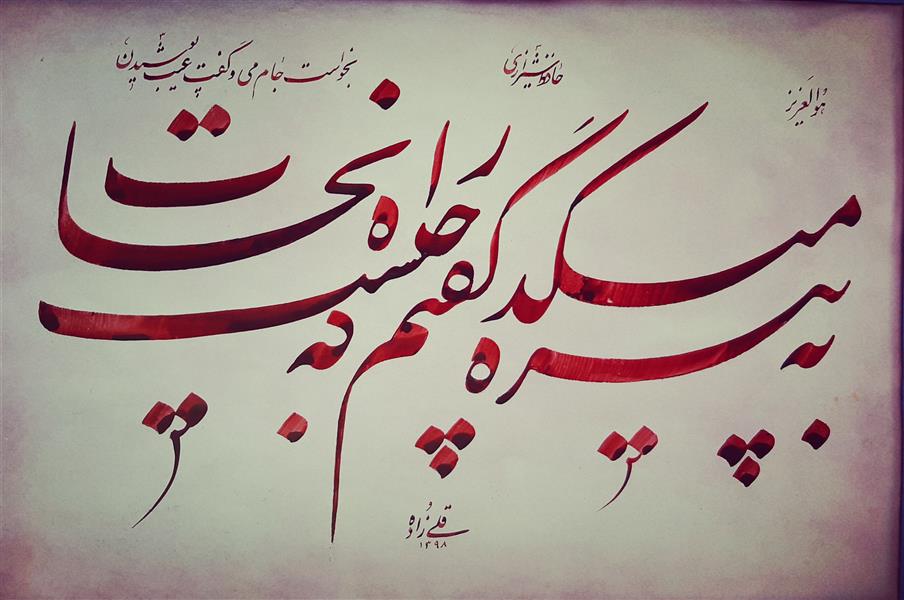 هوالعزیز
حافظ شیرازی
به پیر میکده گفتم که چیست راه نجات
بخواست جام می و گفت عیب پوشیدن
قلی زاده
۱۳۹۸